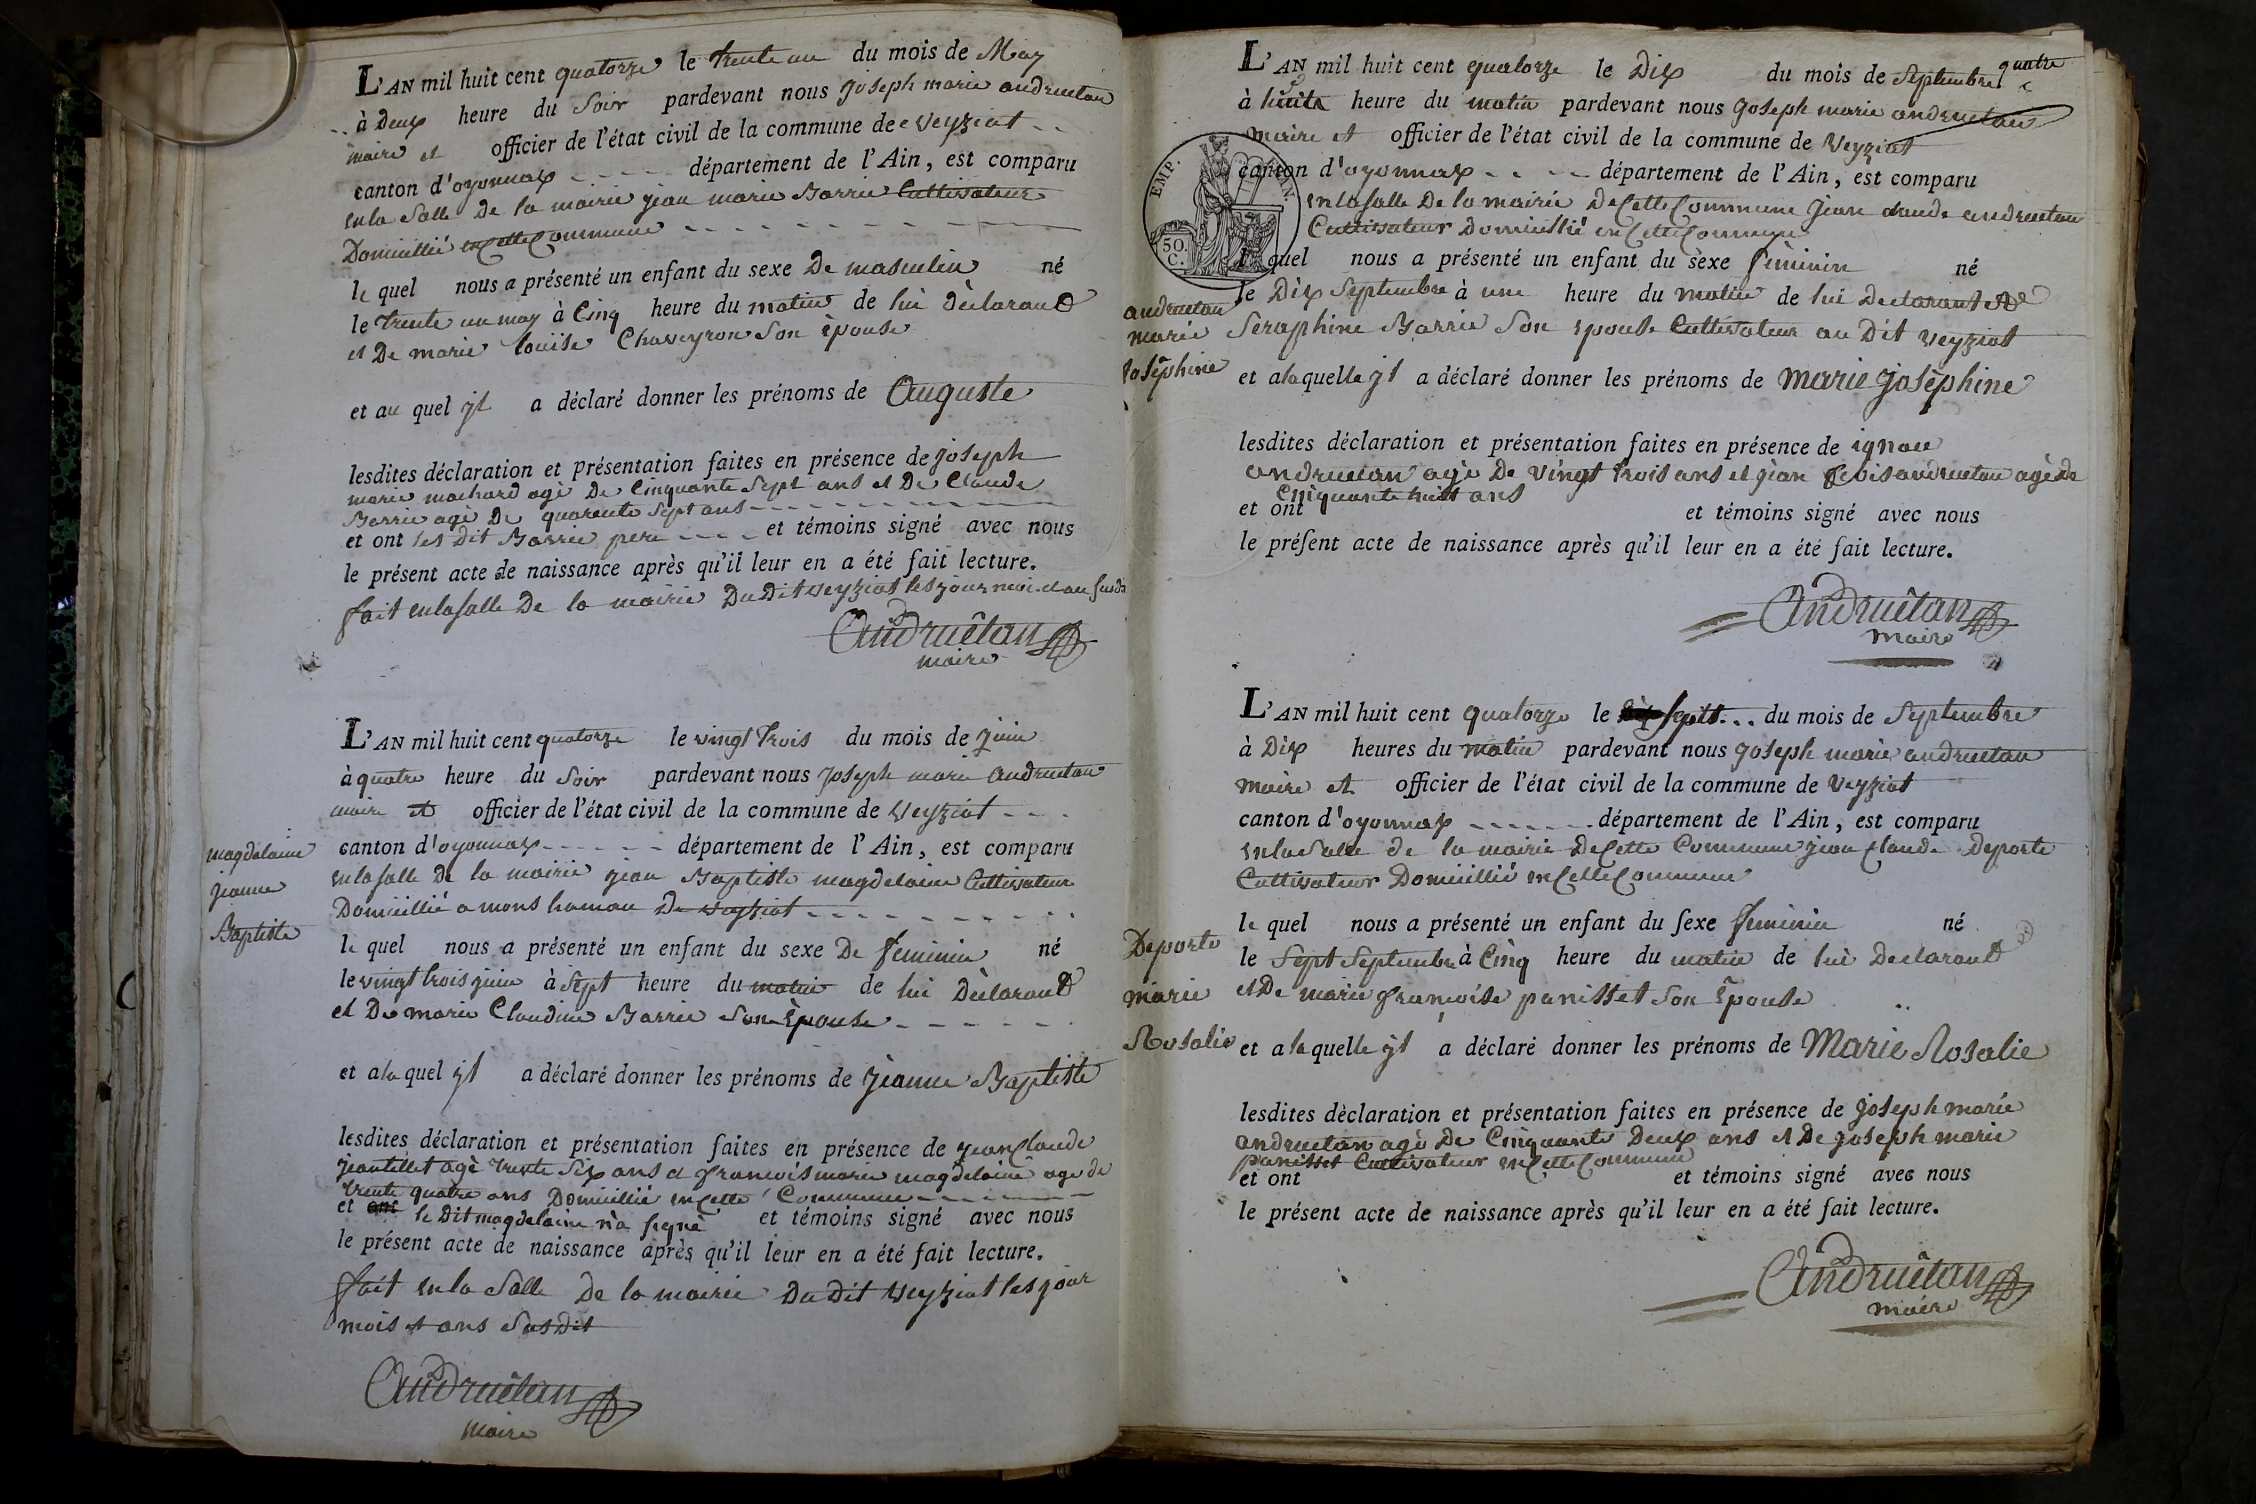 L'AN mil huit cent quatorze le trente un du mois de May
à Deux heure du soir pardevant nous joseph marie andruetan
maire et officier de l'état civil de la commune de veyziat
canton d'oyonnax département de l'Ain, est comparu
en la salle De la mairie jean marie Barrie Cultivateur
Domicillié en Cette Commune
le quel nous a présenté un enfant du sexe De masculin né
le trente un may à Cinq heure du matin de lui dèclarant
et De marie louise Chaveyron Son èpouse
et au quel yl a déclaré donner les prénoms de Auguste
lesdites déclaration et présentation faites en présence de joseph
marie machard agè De Cinquante Sept ans et De Claude
Barrie agè De quarente Sept ans
et ont les dit Barrie pere et témoins signé avec nous
le présent acte de naissance après qu'il leur en a été fait lecture.
fait en la salle De la mairie Du Dit veyziat les jour moi et an susd
Andruêtan
maire
L'AN mil huit cent quatorze le vingt trois du mois de juin
à quatre heure du soir pardevant nous joseph marie andruetan
maire et officier de l'état civil de la commune de veyziat
magdelaine
jeanne
Baptiste
canton d'oyonnax département de l'Ain, est comparu
en la salle De la mairie jean Baptiste magdelaine Cultivateur
Domicillié a mons hamau De veyziat
le quel nous a présenté un enfant du sexe De feminin né
le vingt trois juin à Sept heure du matin de lui Dèclarant
et De marie Claudine Barrie Son Èpouse
et ala quel yl a déclaré donner les prénoms de jeanne Baptiste
lesdites déclaration et présentation faites en présence de jean Claude
jeantellet agè trente Six ans et francois marie magdelaine age de
trente quatre ans Domicillié en Cette Commune
et ont le Dit magdelaine n'a signè et témoins signé avec nous
le présent acte de naissance après qu'il leur en a été fait lecture.
fait en la Salle De la mairie Du Dit veyziat les jour
mois et ans Sus Dit
Andruêtan
maire
quatre
L'AN mil huit cent quatorze le Dix du mois de Septembre
à huite heure du matin pardevant nous joseph marie andruetan
maire et officier de l'état civil de la commune de veyziat
canton d'oyonnax département de l'Ain, est comparu
en la salle De la mairie De Cette Commune jean claude andruetan
Cultivateur Domicillié en Cette Commune
EMP.
50.
C.
le quel nous a présenté un enfant du sèxe féminin né
le Dix Septembre à une heure du matin de lui Declarant et De
andruetan
marie
Josèphine
Seraphine Barrie Son epouse Cultivateur au Dit veyziat
et ala quelle yl a déclaré donner les prénoms de marie josèphine
lesdites déclaration et présentation faites en présence de ignace
andruetan agè De vingt trois ans et jean fcois andruetan agè de
Cinquante huit ans
et ont et témoins signé avec nous
le présent acte de naissance après qu'il leur en a été fait lecture.
Andruêtan
maire
L'AN mil huit cent quatorze le sept du mois de Septembre
à Dix heures du matin pardevant nous joseph marie andruetan
maire et officier de l'état civil de la commune de veyziat
canton d'oyonnax département de l'Ain, est comparu
en la Salle de la mairie De Cette Commune jean Claude Deporte
Cultivateur Domicillié en Cette Commune
le quel nous a présenté un enfant du sexe feminin né
Deporte
marie
Rosalie
le Sept Septembre à Cinq heure du matin de lui Declarant
et De marie francoise panisset Son Èpouse
et ala quelle yl a déclaré donner les prénoms de Marie Rosalie
lesdites déclaration et présentation faites en présence de joseph marie
andruetan agè De Cinquante Deux ans et De joseph marie
panisset Cultivateur en Cette Commune
et ont et témoins signé avec nous
le présent acte de naissance après qu'il leur en a été fait lecture.
Andruêtan
maire